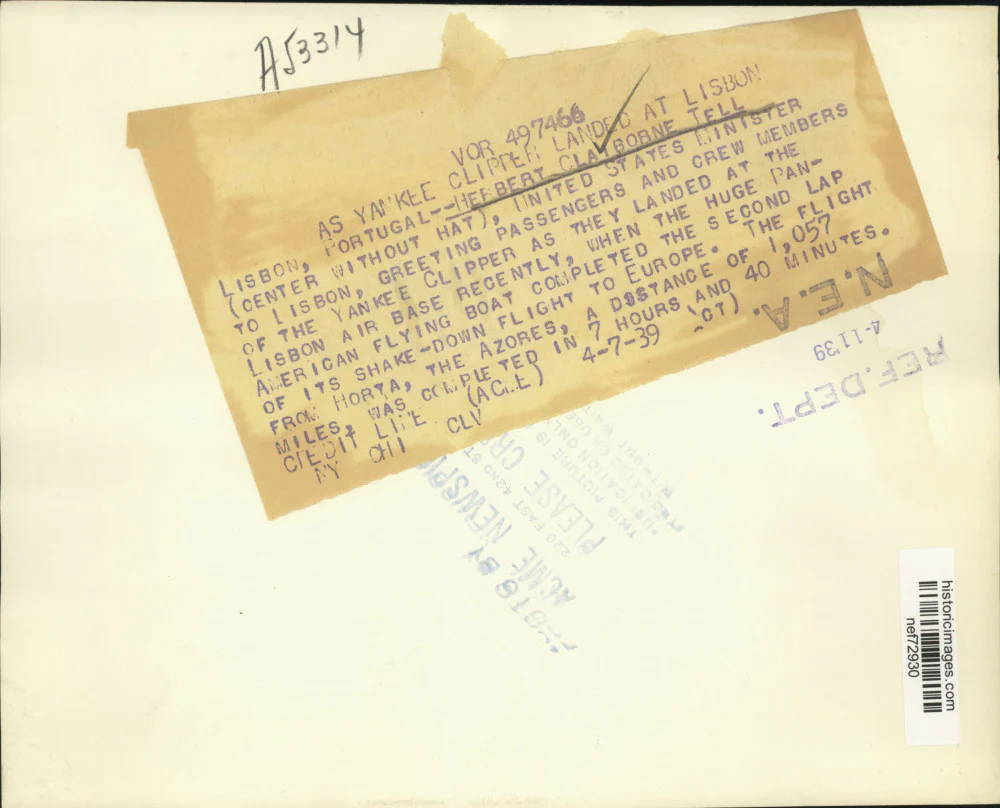 A53314
VOR 497466
AS YANKEE CLIPPER LANDED AT LISBON
LISBON, PORTUGAL--HERBERT CLAIBORNE TELL
(CENTER WITHOUT HAT), UNITED STATES MINISTER
TO LISBON, GREETING PASSENGERS AND CREW MEMBERS
OF THE YANKEE CLIPPER AS THEY LANDED AT THE
LISBON AIR BASE RECENTLY, WHEN THE HUGE PAN-
AMERICAN FLYING BOAT COMPLETED THE SECOND LAP
OF ITS SHAKE-DOWN FLIGHT TO EUROPE. THE FLIGHT
FROM HORTA, THE AZORES, A DISTANCE OF 1,057
MILES, WAS COMPLETED IN 7 HOURS AND 40 MINUTES.
CREDIT LINE (ACME) 4-7-39 (CT)
NY CHI CLV
N.E.A.
4-1139
REF.DEPT.
PHOTO BY
ACME NEWSPI
220 EAST 42ND ST
PLEASE CR
THIS PICTURE
historicimages.com
nef72930